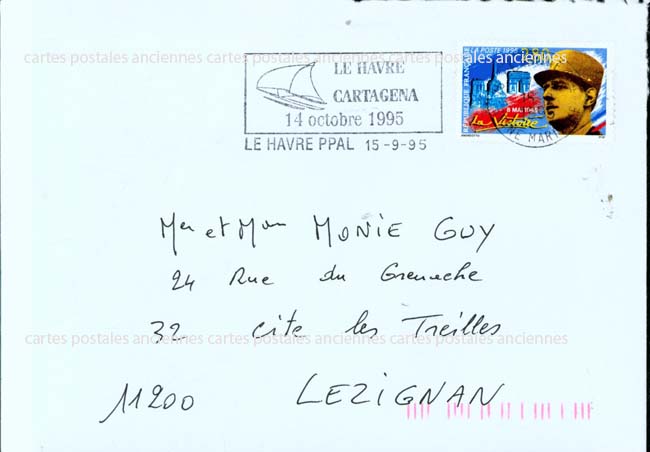 cartes postales anciennes cartes postales anciennes cartes postales anciennes
LE HAVRE
CARTAGENA
14 octobre 1995
LE HAVRE PPAL 15-9-95
LA POSTE 1995 2,80
REPUBLIQUE FRANÇAISE
8 MAI 1945
La Victoire
Mr et Mme MONIE GUY
24 Rue du Grenache
32 cite les Treilles
cartes postales anciennes cartes postales anciennes cartes postales anciennes
11200 LEZIGNAN